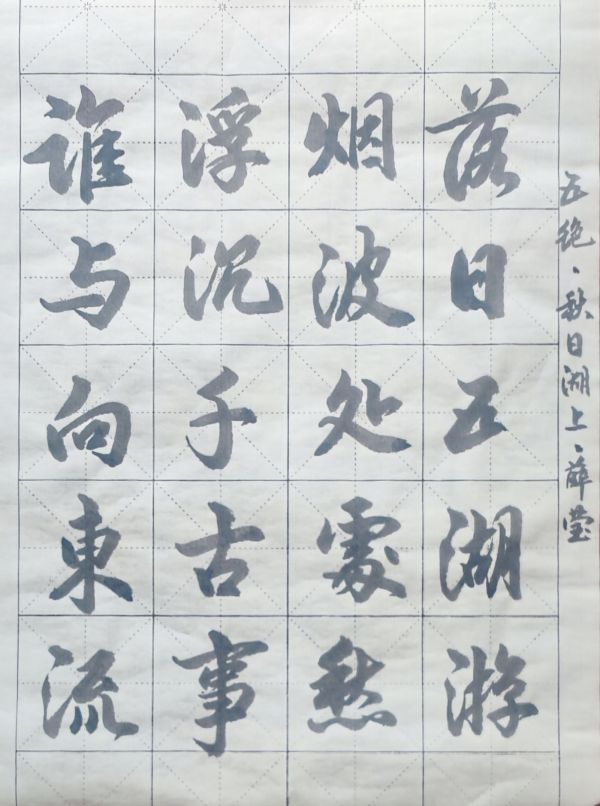 五绝、秋日湖上、薛莹
落日五湖游
烟波处處愁
浮沉千古事
谁与向東流